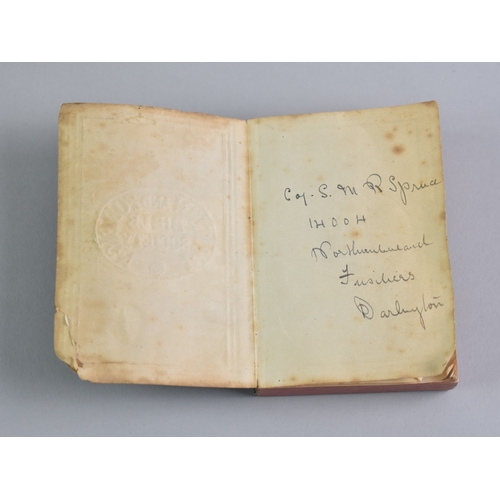 Coy. S. M R Spruce
14004
Northumberland
Fusiliers
Darlington